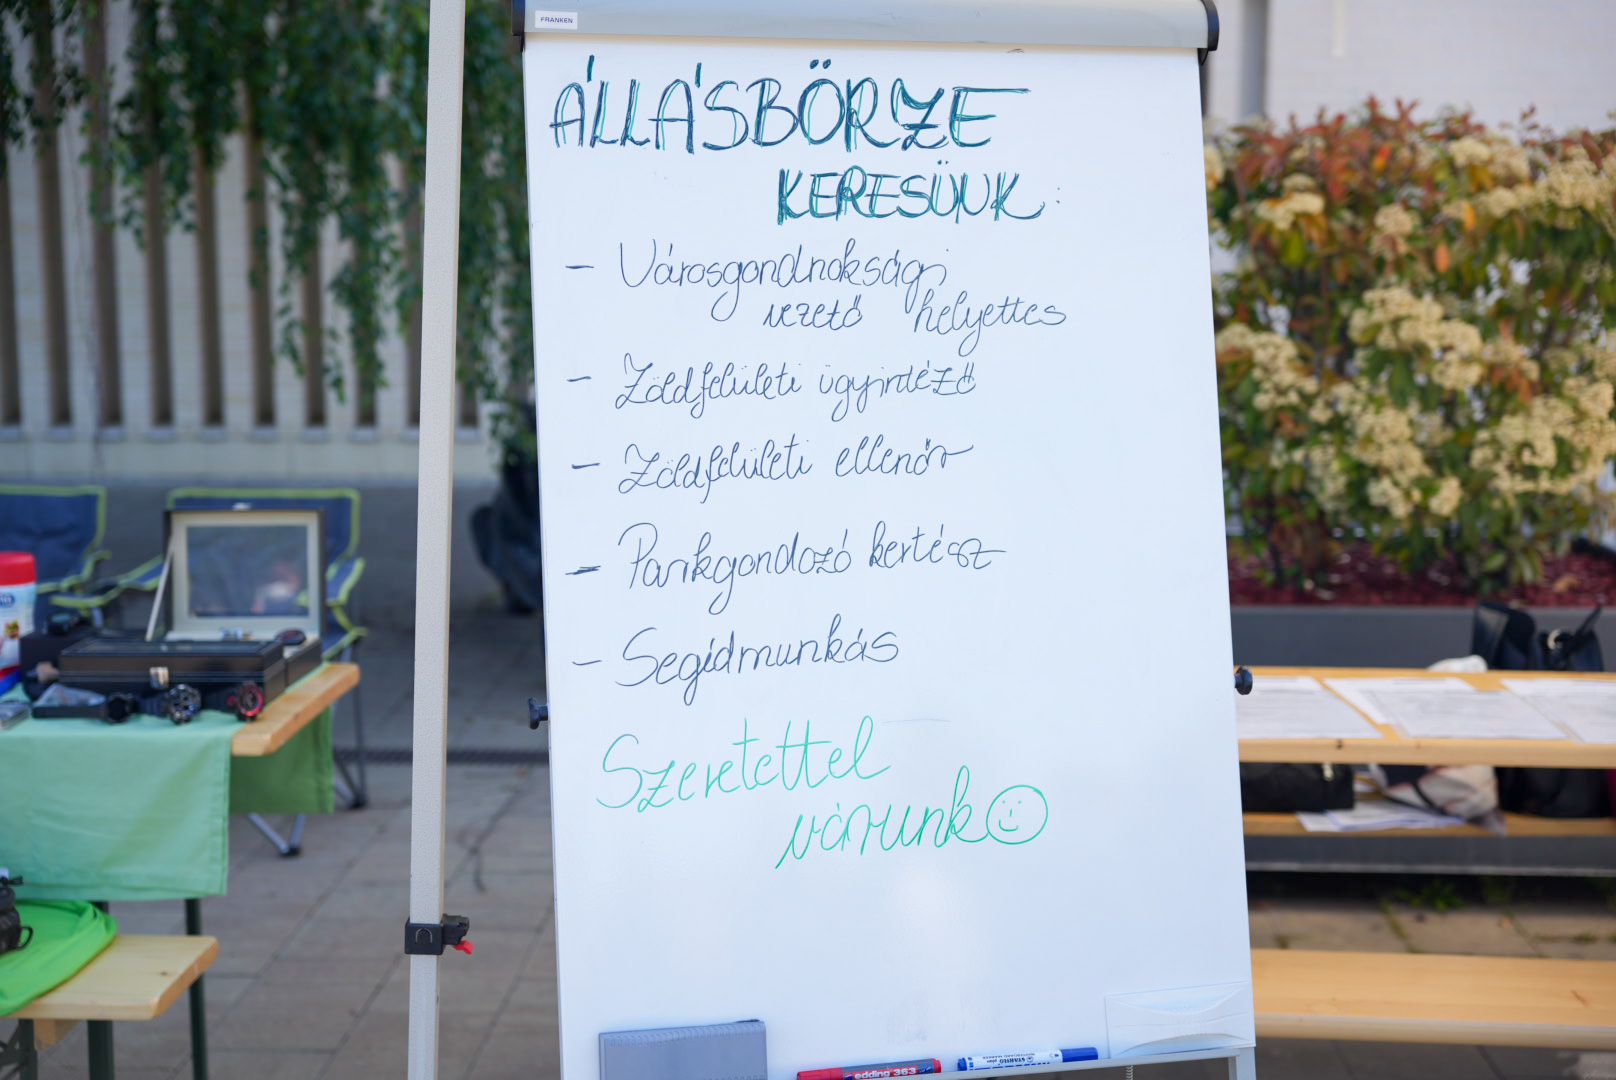 FRANKEN
ÁLLÁSBÖRZE
KERESÜNK:
- Városgondnoksági
vezető helyettes
- Zöldfelületi ügyintéző
- Zöldfelületi ellenőr
- Parkgondozó kertész
- Segédmunkás
Szeretettel
várunk
edding 363